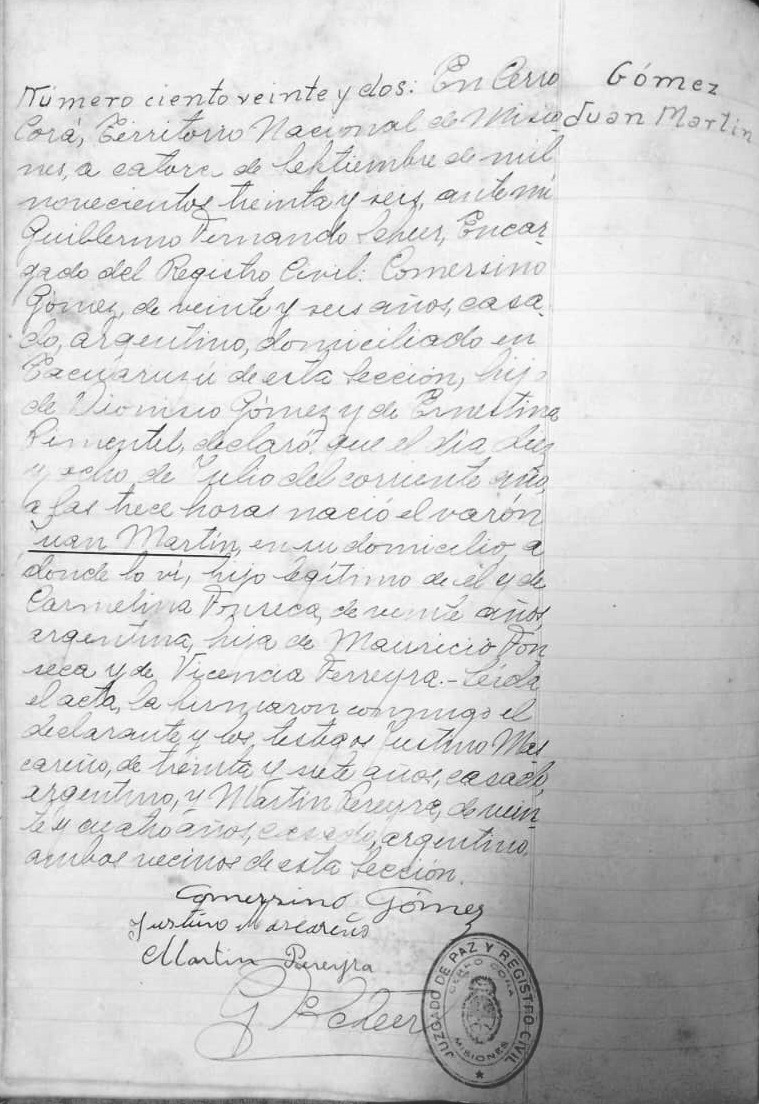 Número ciento veinte y dos: En Cerro
Gómez
Juan Martin
Corá, Territorio Nacional de Misio-
nes, a catorce de Septiembre de mil
novecientos treinta y seis, ante mí
Guillermo Fernando Scheer, Encar-
gado del Registro Civil: Comersino
Gómez, de veinte y seis años, casa-
do, argentino, domiciliado en
Tacuarusú de esta Sección, hijo
de Dionisio Gómez y de Ernestina
Pimentel, declaró: que el día diez
y ocho de Julio del corriente año,
a las trece horas nació el varón
Juan Martín, en su domicilio, a
donde lo ví, hijo legítimo de él y de
Carmelina Fonseca, de veinte años,
argentina, hija de Mauricio Fon-
seca y de Vicencia Ferreyra.- Leída
el acta, la firmaron conmigo el
declarante y los testigos Justino Mas-
careño, de treinta y siete años, casado,
argentino, y Martín Pereyra, de vein-
te y cuatro años, casado, argentino,
ambos vecinos de esta Sección.
Comersino Gómez
Justino Mascareño
Martin Pereyra
G F Scheer
JUZGADO DE PAZ Y REGISTRO CIVIL
CERRO CORA
MISIONES